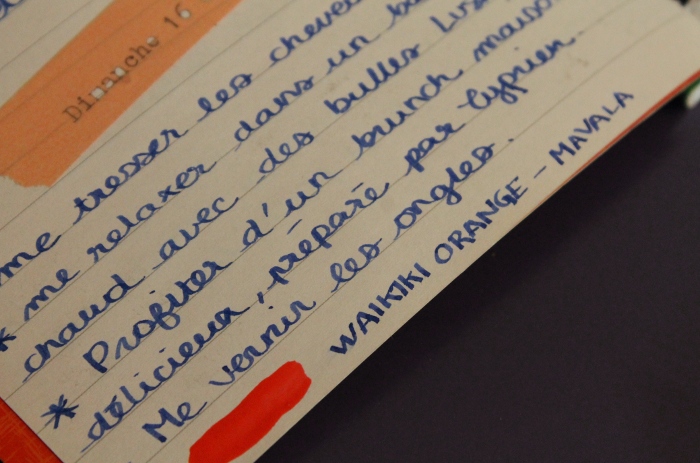 Dimanche 16
me tresser les cheveu
* me relaxer dans un ba
chaud avec des bulles Lus
* Profiter d'un brunch maiso
délicieux, préparé par Cyprien.
Me vernir les ongles.
WAIKIKI ORANGE - MAVALA